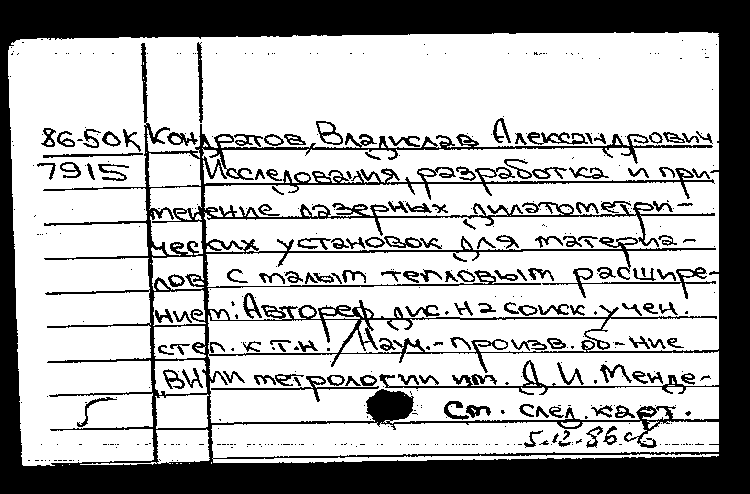 86-50К Кондратов, Владислав Александрович.
7915 Исследования, разработка и при-
менение лазерных дилатометри-
ческих установок для материа-
лов с малым тепловым расшире-
нием: Автореф. дис. на соиск. учен.
степ. к.т.н. / Науч.-произв. об-ние
„ВНИИ метрологии им. Д.И. Менде-
См. след. карт.
5.12.86